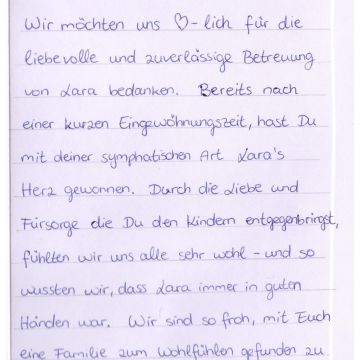 Wir möchten uns ♡-lich für die
liebevolle und zuverlässige Betreuung
von Lara bedanken. Bereits nach
einer kurzen Eingewöhnungszeit, hast Du
mit deiner symphatischen Art Lara's
Herz gewonnen. Durch die Liebe und
Fürsorge die Du den Kindern entgegenbringst,
fühlten wir uns alle sehr wohl - und so
wussten wir, dass Lara immer in guten
Händen war. Wir sind so froh, mit Euch
eine Familie zum Wohlfühlen gefunden zu